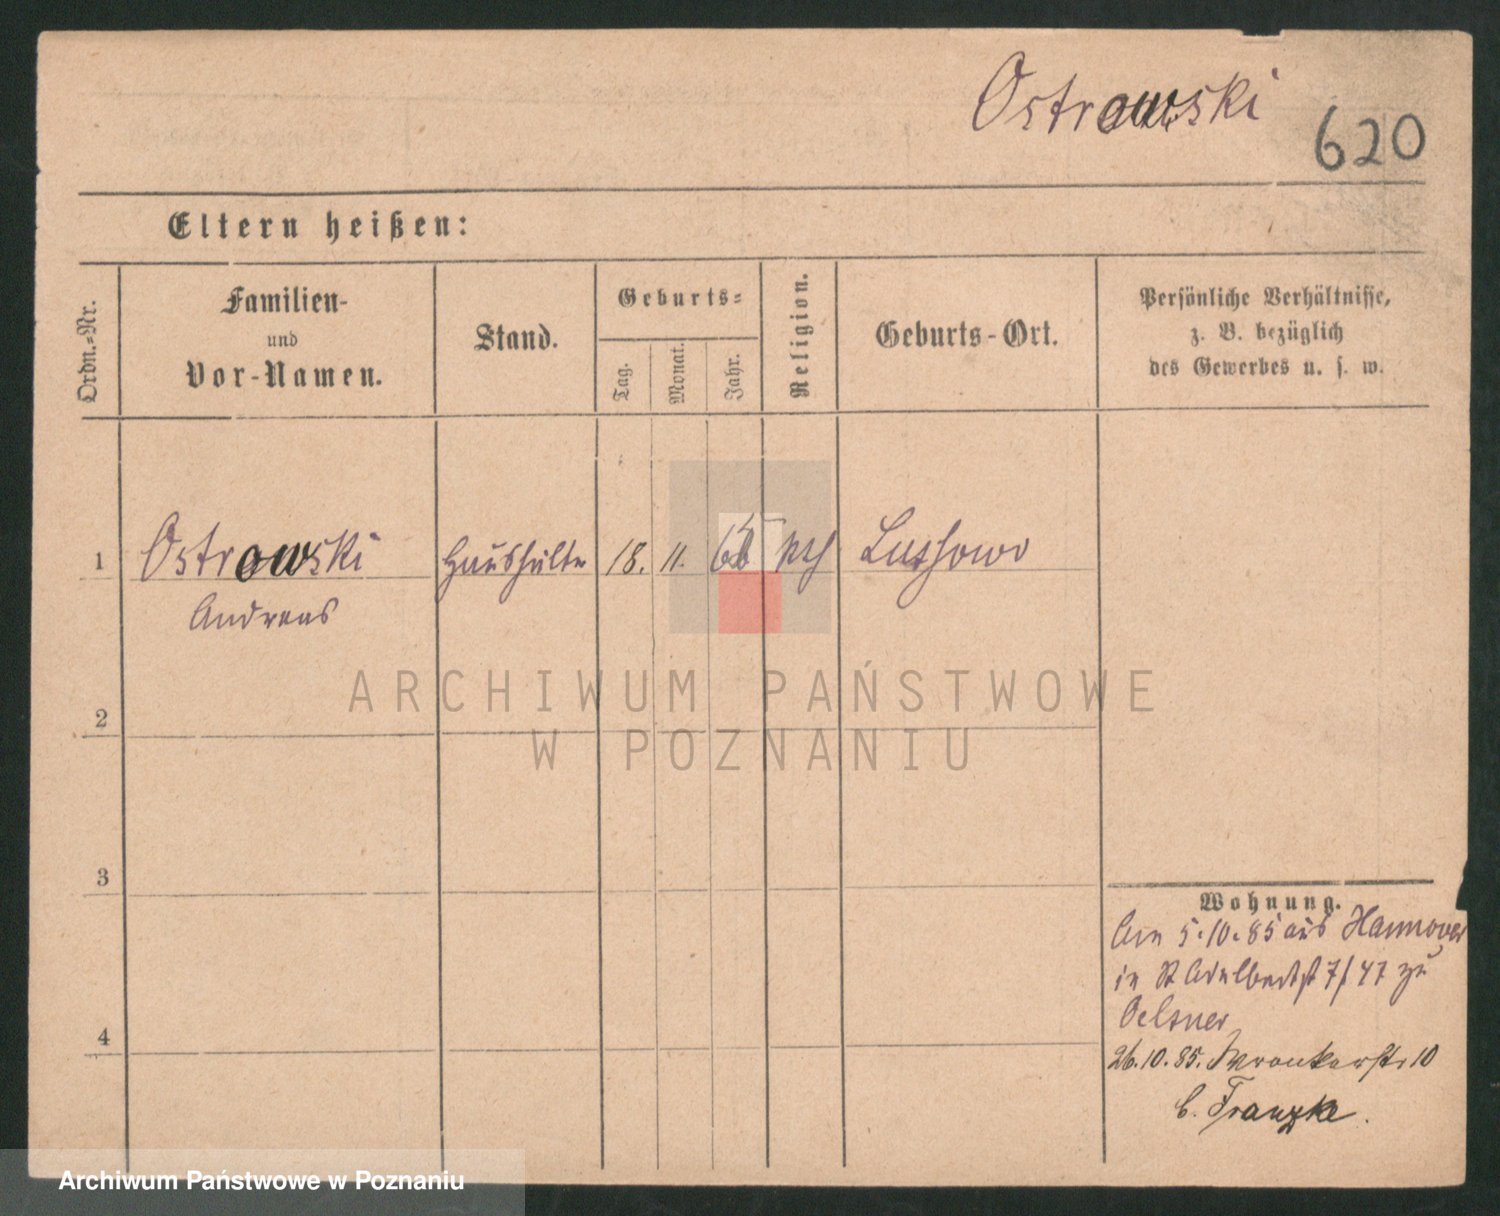 Ostrowski
620
Eltern heißen:
Ordn.-Nr.
Familien-
und
Vor-Namen.
Stand.
Geburts-
Tag.
Monat.
Jahr.
Religion.
Geburts-Ort.
Persönliche Verhältnisse,
z. B. bezüglich
des Gewerbes u. s. w.
1 Ostrowski Haushälter 18. 11. kth Lussowo
Andreas
ARCHIWUM PAŃSTWOWE
W POZNANIU
2
3
4
Wohnung.
Am 5.10.85 aus Hannover
in St Adalbertst 7/47 zu
Oelsner
26.10.85. Wronkerstr 10
b. Franzke.
Archiwum Państwowe w Poznaniu